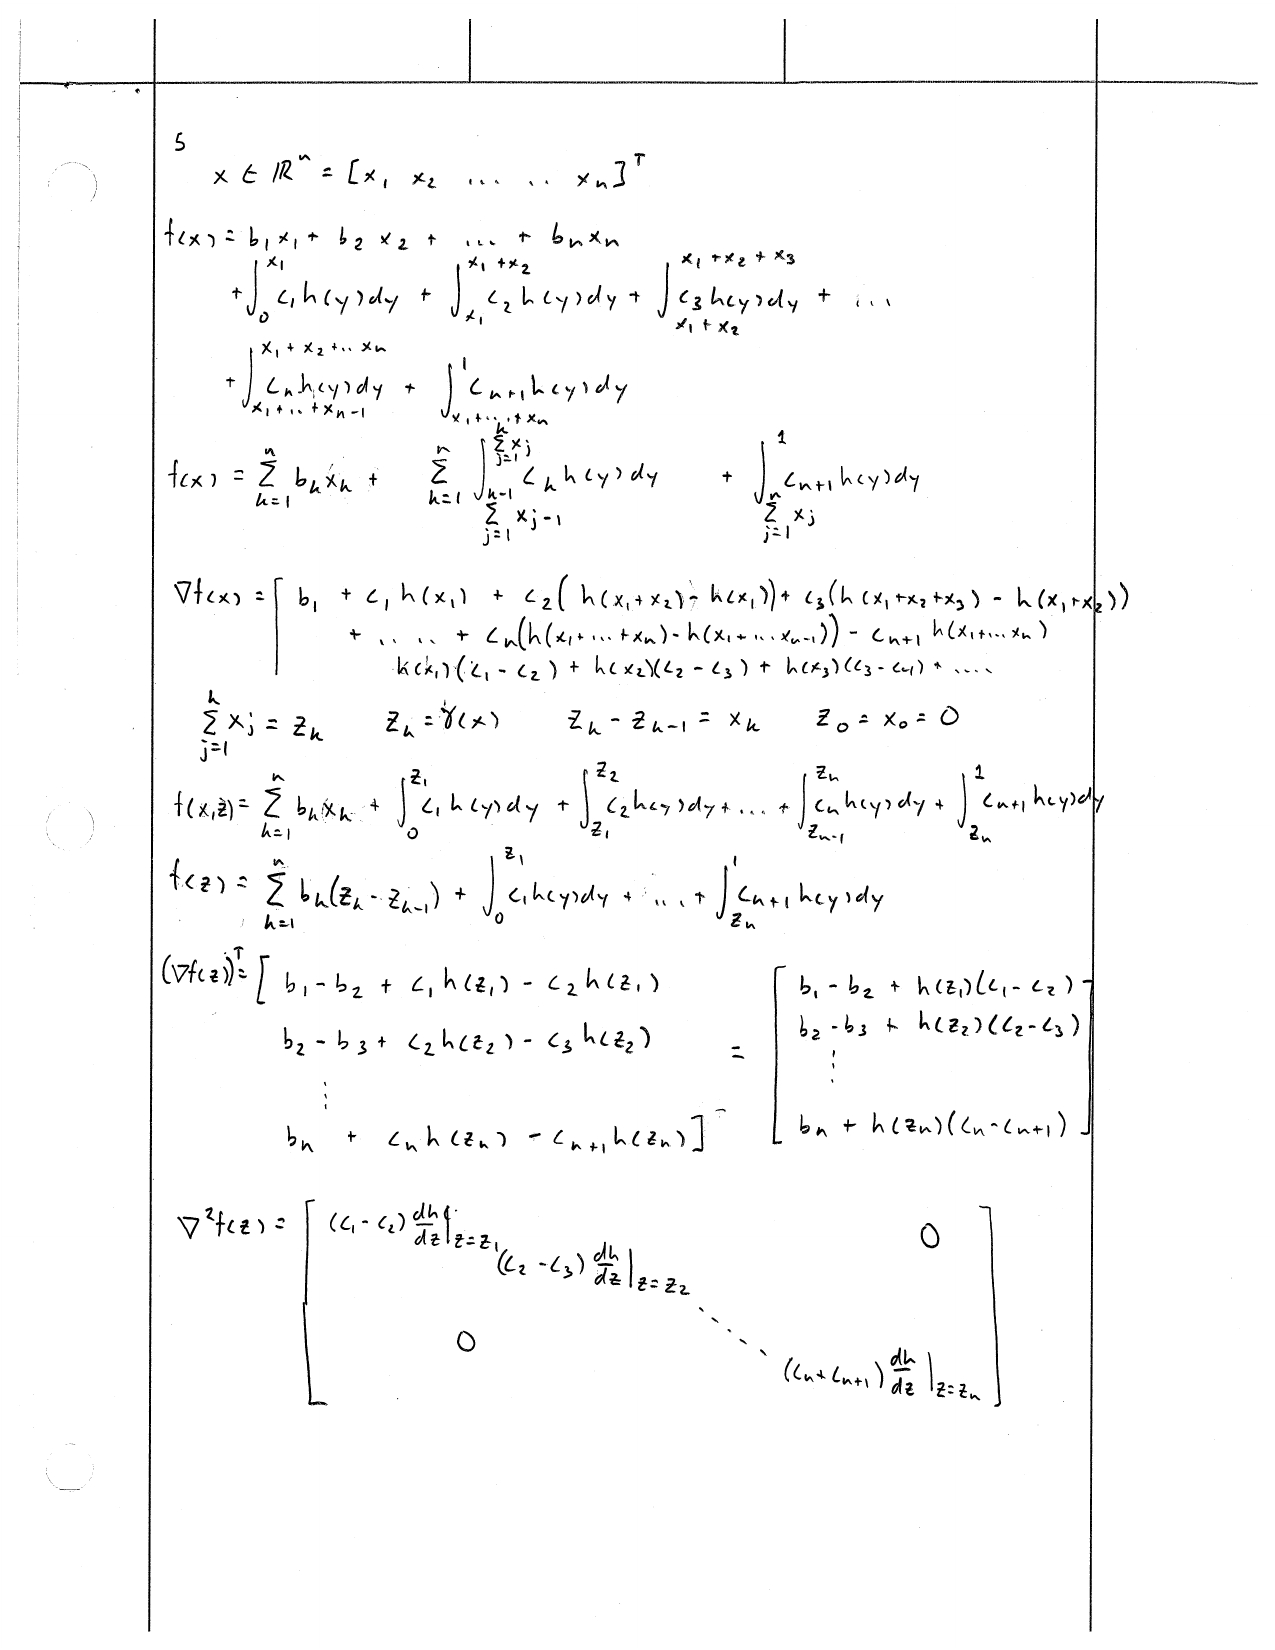 5
x ∈ ℝⁿ = [x₁ x₂ ... .. xₙ]ᵀ
f(x) = b₁x₁ + b₂x₂ + ... + bₙxₙ
+ ∫₀^{x₁} c₁h(y)dy + ∫_{x₁}^{x₁+x₂} c₂h(y)dy + ∫_{x₁+x₂}^{x₁+x₂+x₃} c₃h(y)dy + ...
+ ∫_{x₁+..+x_{n-1}}^{x₁+x₂+..xₙ} cₙh(y)dy + ∫_{x₁+...+xₙ}^{1} c_{n+1}h(y)dy
f(x) = Σ_{k=1}^{n} bₖxₖ + Σ_{k=1}^{n} ∫_{Σ_{j=1}^{k-1} x_{j-1}}^{Σ_{j=1}^{k} x_j} cₖh(y)dy + ∫_{Σ_{j=1}^{n} x_j}^{1} c_{n+1}h(y)dy
∇f(x) = [ b₁ + c₁h(x₁) + c₂(h(x₁+x₂) - h(x₁)) + c₃(h(x₁+x₂+x₃) - h(x₁+x₂))
+ .. .. + cₙ(h(x₁+...+xₙ) - h(x₁+...x_{n-1})) - c_{n+1}h(x₁+...xₙ)
h(x₁)(c₁-c₂) + h(x₂)(c₂-c₃) + h(x₃)(c₃-c₄) + ....
Σ_{j=1}^{k} x_j = zₖ zₖ = γ(x) zₖ - z_{k-1} = xₖ z₀ = x₀ = 0
f(x,z) = Σ_{k=1}^{n} bₖxₖ + ∫₀^{z₁} c₁h(y)dy + ∫_{z₁}^{z₂} c₂h(y)dy + ... + ∫_{z_{n-1}}^{zₙ} cₙh(y)dy + ∫_{zₙ}^{1} c_{n+1}h(y)dy
f(z) = Σ_{k=1}^{n} bₖ(zₖ - z_{k-1}) + ∫₀^{z₁} c₁h(y)dy + ... + ∫_{zₙ}^{1} c_{n+1}h(y)dy
(∇f(z))ᵀ = [ b₁-b₂ + c₁h(z₁) - c₂h(z₁) [ b₁-b₂ + h(z₁)(c₁-c₂) ]
b₂-b₃ + c₂h(z₂) - c₃h(z₂) = b₂-b₃ + h(z₂)(c₂-c₃)
⋮ ⋮
bₙ + cₙh(zₙ) - c_{n+1}h(zₙ) ]⁻ bₙ + h(zₙ)(cₙ-c_{n+1})
∇²f(z) = [ (c₁-c₂) dh/dz|_{z=z₁} 0 ]
(c₂-c₃) dh/dz|_{z=z₂}
0 ⋱
(cₙ+c_{n+1}) dh/dz|_{z=zₙ}